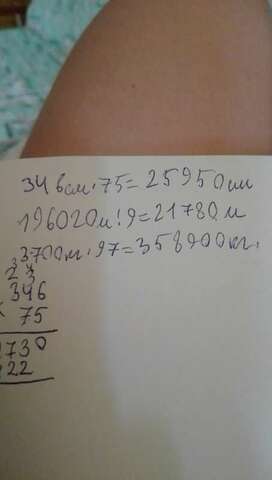 346см·75=25950см
196020м:9=21780м
3700кг·97=358900кг.
3 4
2 3
346
× 75
1730
422